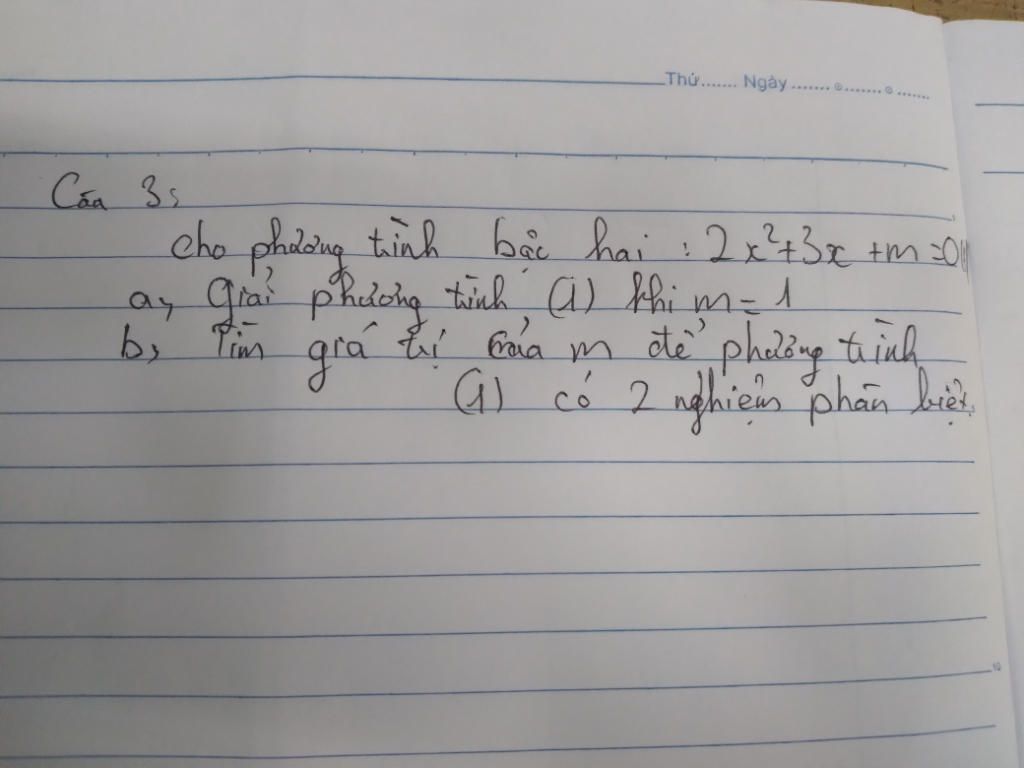 Thứ....... Ngày ....... ........ .......
Câu 3:
cho phương tình bậc hai : 2x²+3x +m =0 (1)
a, Giải phương tình (1) khi m = 1
b, Tìm giá trị của m để phương trình
(1) có 2 nghiệm phân biệt.